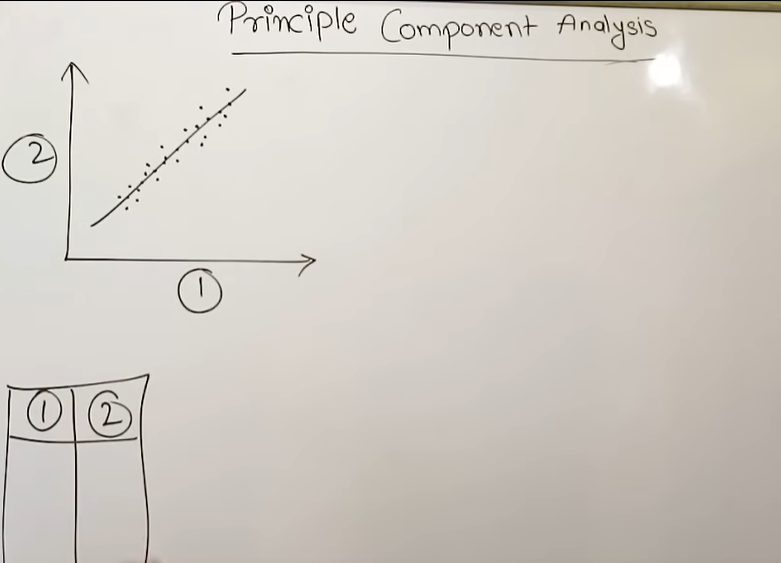 Principle Component Analysis
2
1
1 2